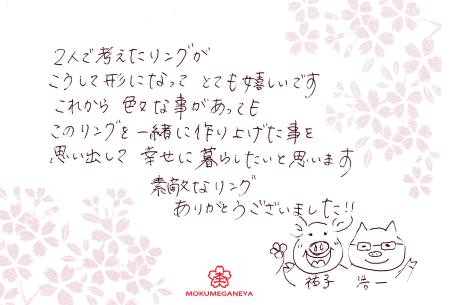 2人で考えたリングが
こうして形になって とても嬉しいです
これから 色々な事があっても
このリングを一緒に作り上げた事を
思い出して 幸せに暮らしたいと思います
素敵なリング
ありがとうございました!!
祐子 浩一
MOKUMEGANEYA